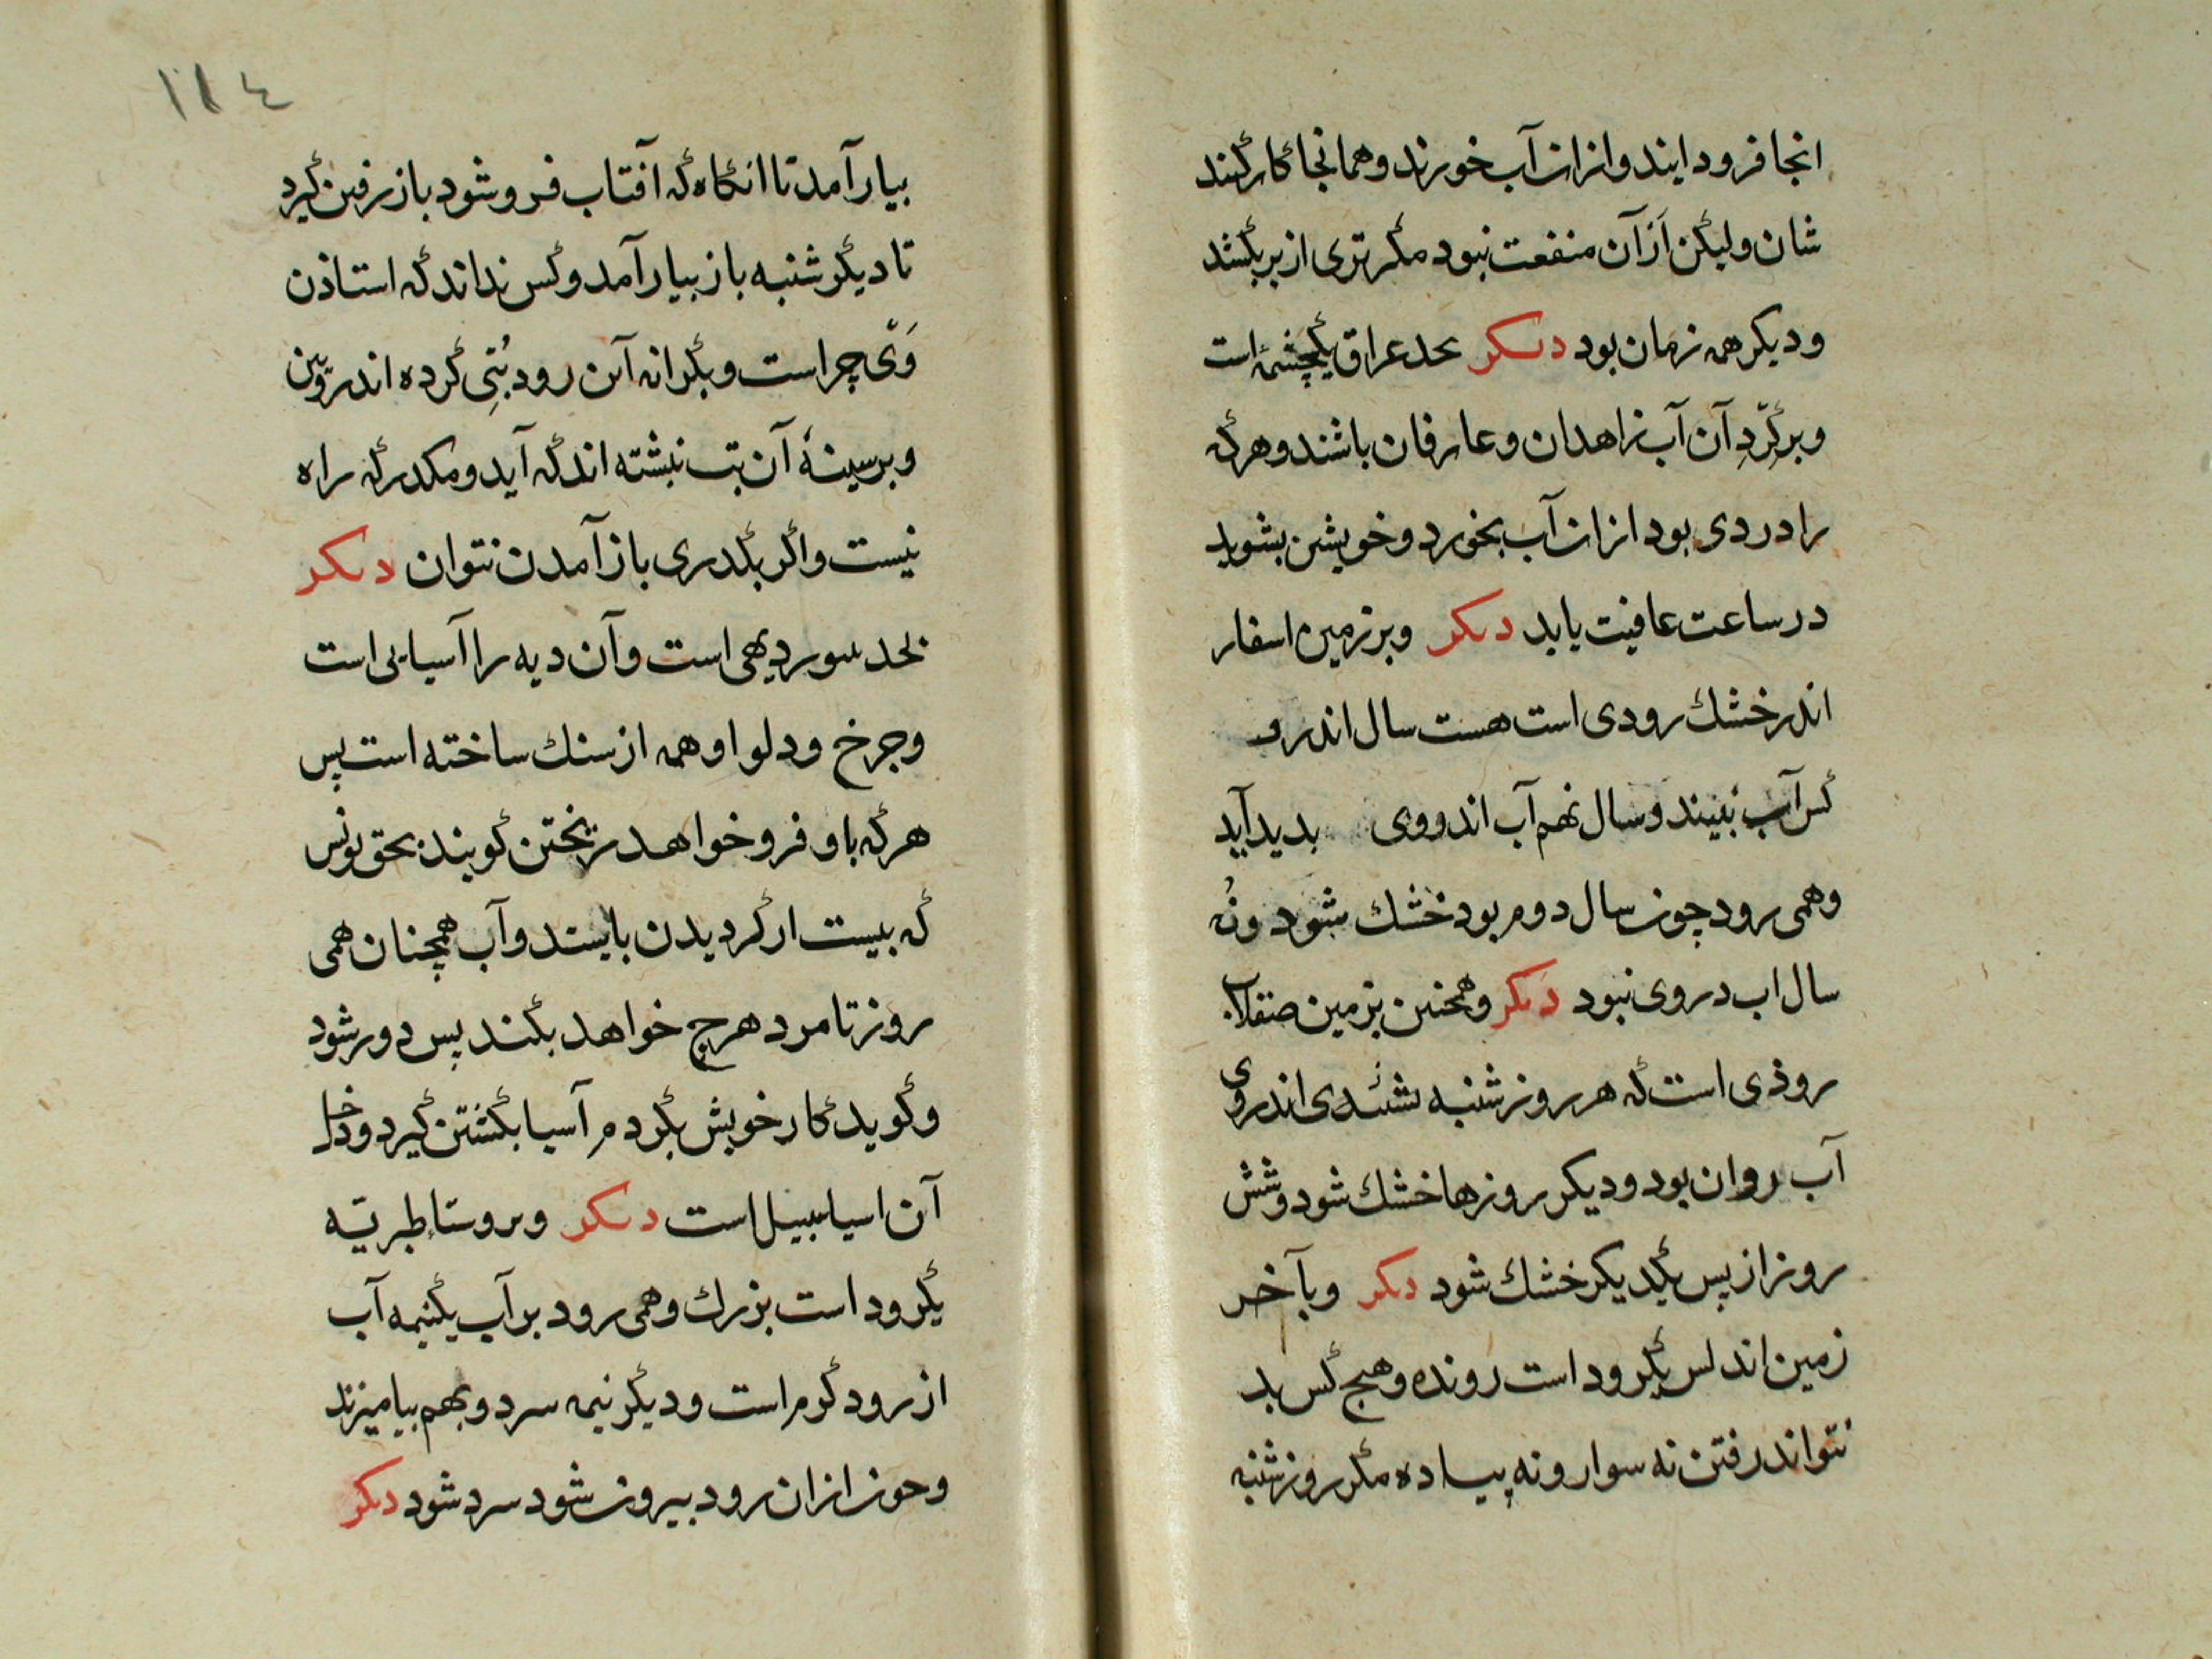 انجا فرود ایند و ازان آب خورند و همانجا کار کنند
شان ولیکن ازآن منفعت نبود مکر تری از بر بکشد
و دیکر همه زمان بود دیکر بحد عراق یکچشمهٔ است
و برکردِ آن آب زاهدان و عارفان باشند و هرکه
را دردی بود ازان آب بخورد و خویشن بشوید
در ساعت عافیت یابد دیکر و بر زمین اسفار
اندر خشك رودی است هست سال اندرو
کس آب نبیند و سال نهم آب اندووی بدید آید
وهمی رود چون سال دوم بود خشك شود ونُه
سال اب دروی نبود دیکر و همچنین بزمین صقلاب
روذی است که هر روز شنبه اندروی
آب روان بود و دیکر روزها خشك شود و شش
روز از پس یکدیکر خشك شود دیکر و بآخر
زمین اندلس یکرود است رونده و هیج کس بد
نتواند رفتن نه سوار و نه پیاده مکر روز شنبه
١١٤
بیارآمد تا انکاه که آفتاب فروشود باز رفتن کیرد
تا دیکر شنبه باز بیارآمد و کس نداند که استاذن
وَی چرا است و بکرانه آن رود بُتِی کرده اند رویین
و بر سینهٔ آن بت نبشته اند که آید و مکذر که راه
نیست و اکر بکذری باز آمدن نتوان دیکر
بحد سور دیهی است و آن دیه را آسیایی است
و جرخ و دلو او همه از سنك ساخته است پس
هرکه باو فرو خواهد ریختن کویند بحق یونس
که بیست ار کردیدن بایستد و آب همچنان همی
روز تا مرد هرچ خواهد بکند پس دور شود
و کوید کار خویش بکردم آسیا بکشتن کیرد و دخل
آن اسیا سبیل است دیکر و بروستا طبریه
یکرود است بزرك و همی رود بر آب یکنیمه آب
از رود کرم است و دیکر نیمه سرد و بهم بیامیزند
و حون ازان رود بیرون شود سرد شود دیکر